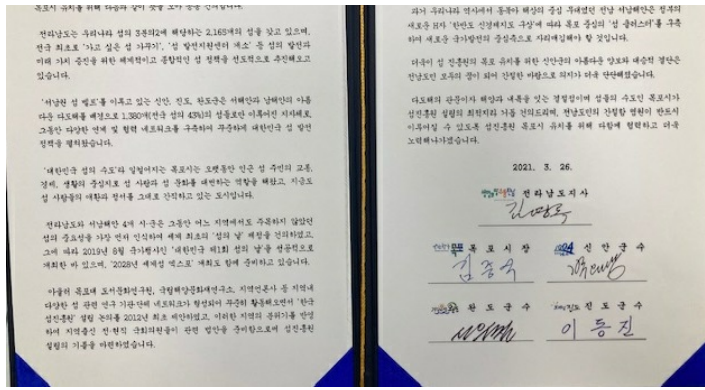 목포시 유치를 위해 다음과 같이 뜻을 모아 공동 건의합니다.
전라남도는 우리나라 섬의 3분의2에 해당하는 2,165개의 섬을 갖고 있으며,
전국 최초로 '가고 싶은 섬 가꾸기', '섬 발전지원센터 개소' 등 섬의 발전과
미래 가치 증진을 위한 체계적이고 종합적인 섬 정책을 선도적으로 추진해오고
있습니다.
'서남권 섬 벨트'를 이루고 있는 신안, 진도, 완도군은 서해안과 남해안의 아름
다운 다도해를 배경으로 1,380개(전국 섬의 43%)의 섬들로만 이루어진 지자체로,
그동안 다양한 연계 및 협력 네트워크를 구축하여 꾸준하게 대한민국 섬 발전
정책을 펼쳐왔습니다.
'대한민국 섬의 수도'라 일컬어지는 목포시는 오랫동안 인근 섬 주민의 교통,
경제, 생활의 중심지로 섬 사람과 섬 문화를 대변하는 역할을 해왔고, 지금도
섬 사람들의 애환과 정서를 그대로 간직하고 있는 도시입니다.
전라남도와 서남해안 4개 시·군은 그동안 어느 지역에서도 주목하지 않았던
섬의 중요성을 가장 먼저 인식하여 세계 최초의 '섬의 날' 제정을 건의하였고,
그에 따라 2019년 8월 국가행사인 '대한민국 제1회 섬의 날'을 성공적으로
개최한 바 있으며, '2028년 세계섬 엑스포' 개최도 함께 준비하고 있습니다.
아울러 목포대 도서문화연구원, 국립해양문화재연구소, 지역언론사 등 지역내
다양한 섬 관련 연구 기관단체 네트워크가 형성되어 꾸준히 활동해오면서 '한국
섬진흥원' 설립 논의를 2012년 최초 제안하였고, 이러한 지역의 분위기를 반영
하여 지역출신 전·현직 국회의원들이 관련 법안을 준비함으로써 섬진흥원
설립의 기틀을 마련하였습니다.
과거 우리나라 역사에서 동북아 해상의 중심 무대였던 전남 서남해안은 정부의
새로운 H자 '한반도 신경제지도 구상'에 따라 목포 중심의 '섬 클러스터'를 구축
하여 새로운 국가발전의 중심축으로 자리매김해야 할 것입니다.
더국이 섬 진흥원의 목포 유치를 위한 신안군의 아름다운 양보와 대승적 결단은
전남도민 모두의 꿈이 되어 간절한 바람으로 의지가 더욱 단단해졌습니다.
다도해의 관문이자 해양과 내륙을 잇는 결절점이며 섬들의 수도인 목포시가
섬진흥원 설립의 최적지라 거듭 건의드리며, 전남도민의 간절한 염원이 반드시
이루어질 수 있도록 섬진흥원 목포시 유치를 위해 다함께 협력하고 더욱
노력해나가겠습니다.
2021. 3. 26.
전라남도지사
김영록
목포시장 신안군수
김종식
완도군수 진도군수
이동진